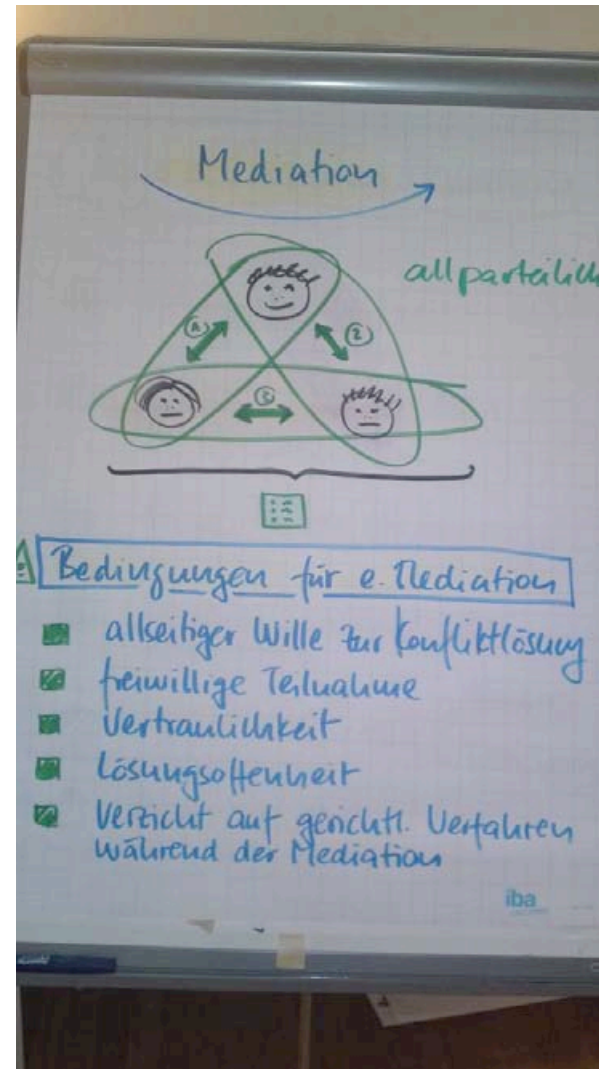 Mediation
allparteilich
1
2
3
Bedingungen für e. Mediation
allseitiger Wille zur Konfliktlösung
freiwillige Teilnahme
Vertraulichkeit
Lösungsoffenheit
Verzicht auf gerichtl. Verfahren
während der Mediation
iba